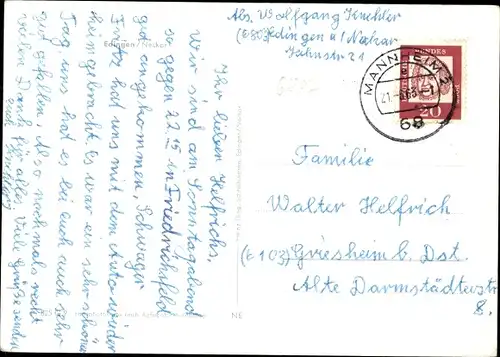 Abs. Wolfgang Kuchler
(6803) Edingen a/Neckar
Jahnstr. 21
MANNHEIM 2
21.
68
20
Familie
Walter Helfrich
(6103) Griesheim b. Dst.
Alte Darmstädterstr
8.
Edingen / Neckar
Ihr lieben Helfrichs,
Wir sind am Sonntagabend
so gegen 22 15 in Friedrichsfeld
gut angekommen, Schwager
Fritz hat uns mit dem Auto wieder
heimgebracht. Es war ein sehr schöner
Tag uns hat es bei euch auch sehr
gut gefallen. Also nochmals recht
vielen Dank für alles. Viele Grüße senden
euch
N6